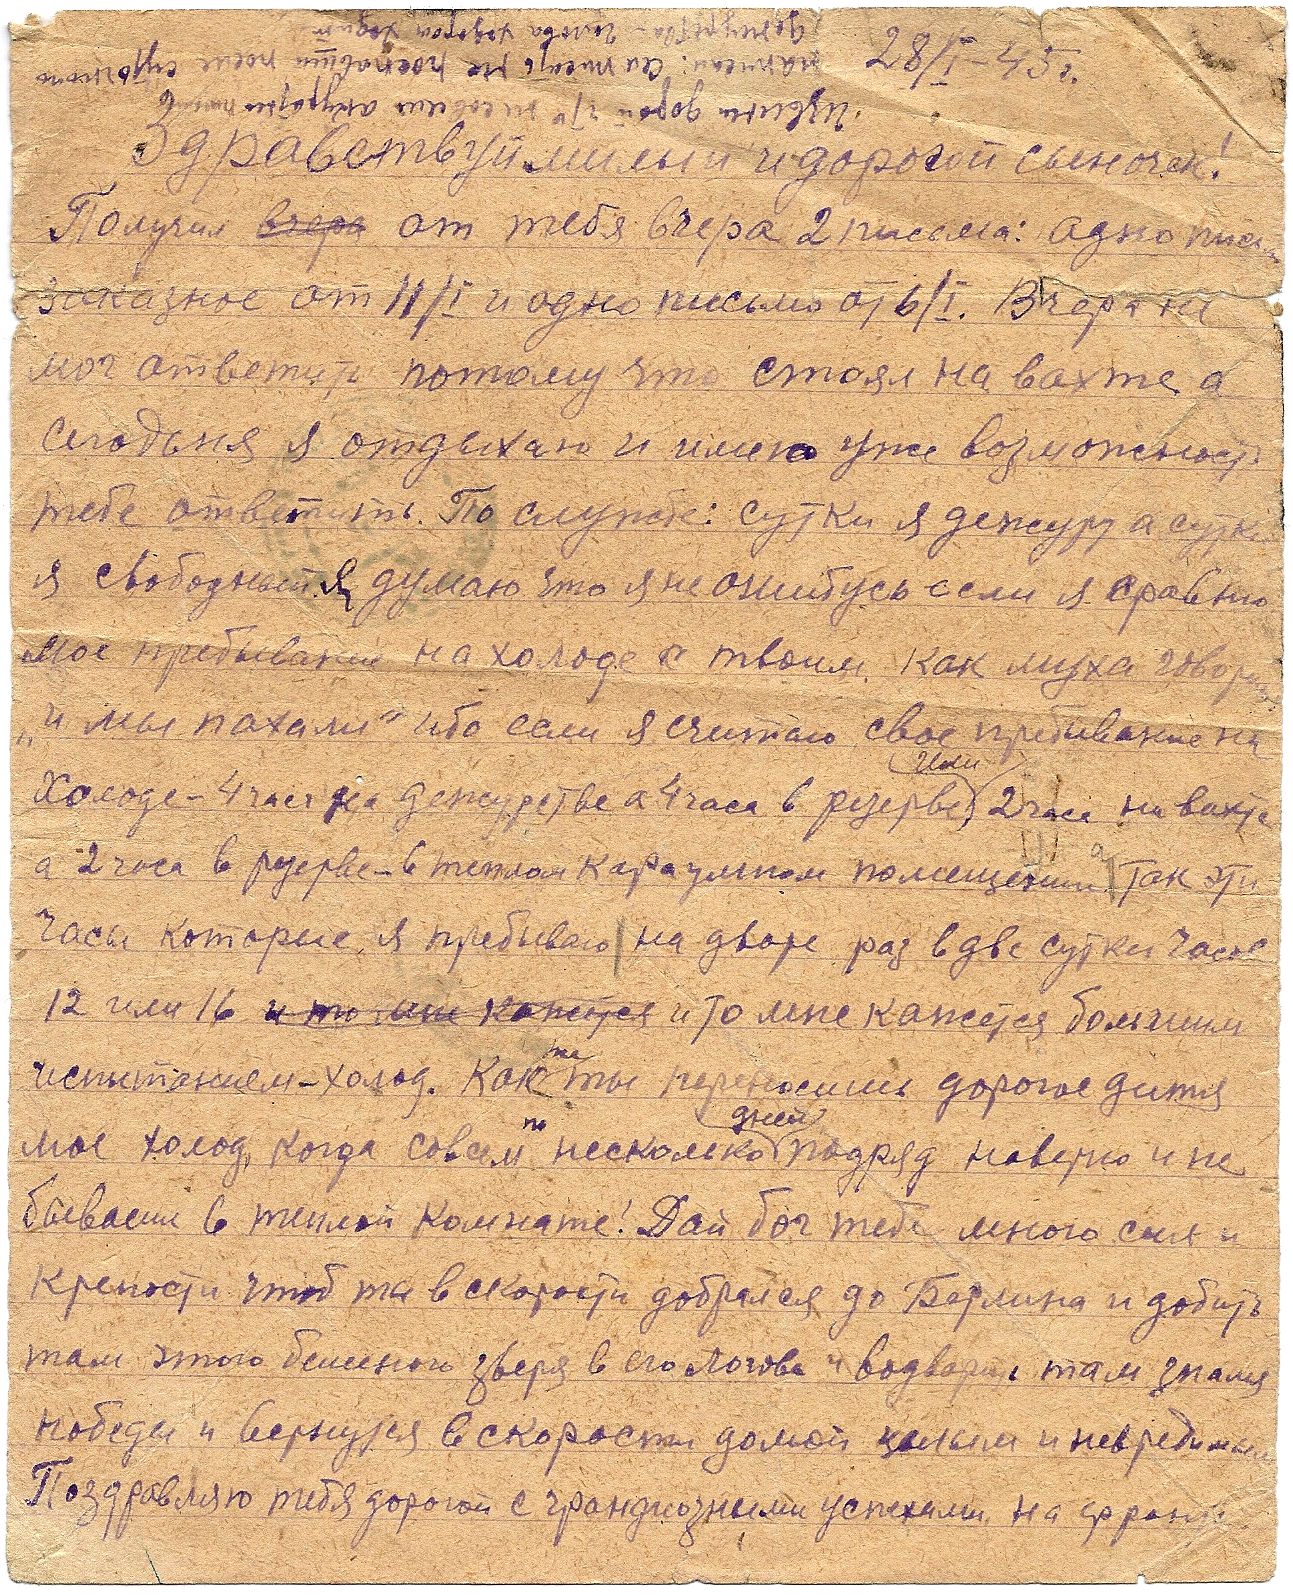 28/I-45 г.
Извини дорогой что несовсем аккуратно
написал: не поспавши после суточного
дежурства - голова ходором ходит
Здравствуй милый и дорогой сыночек!
Получил вчера от тебя вчера 2 письма: одно
заказное от 11/I и одно письмо от 6/I. Вчера не
мог ответить потому что стоял на вахте а
сегодьня я отдыхаю и имею уже возможность
тебе ответить. По службе: сутки я дежурю а сутки
я свободный. Я думаю что я не ошибусь если я сравню
мое пребывание на холоде с твоим. Как муха говорит
„и мы пахали“ ибо если я считаю свое пребывание на
холоде - 4 часа на дежурстве а 4 часа в резерве (или) 2 часа на вахте
а 2 часа в резерве - в теплом караульном помещении, а так эти
часы которые я пребываю на дворе раз в две сутки часов
12 или 16 и то мне кажется и то мне кажется большим
испытанием - холод. Как же ты переносишь дорогое дитя
мое холод, когда совсем по несколько дней подряд наверно и не
бываеш в теплой комнате! Дай бог тебе много сил и
крепости чтоб ты вскорости добрался до Берлина и добить
там этого бешеного зверя в его логове и водворить там знамя
победы и вернутся вскорости домой целым и невредимым
Поздравляю тебя дорогой с грандиозными успехами на фронте.